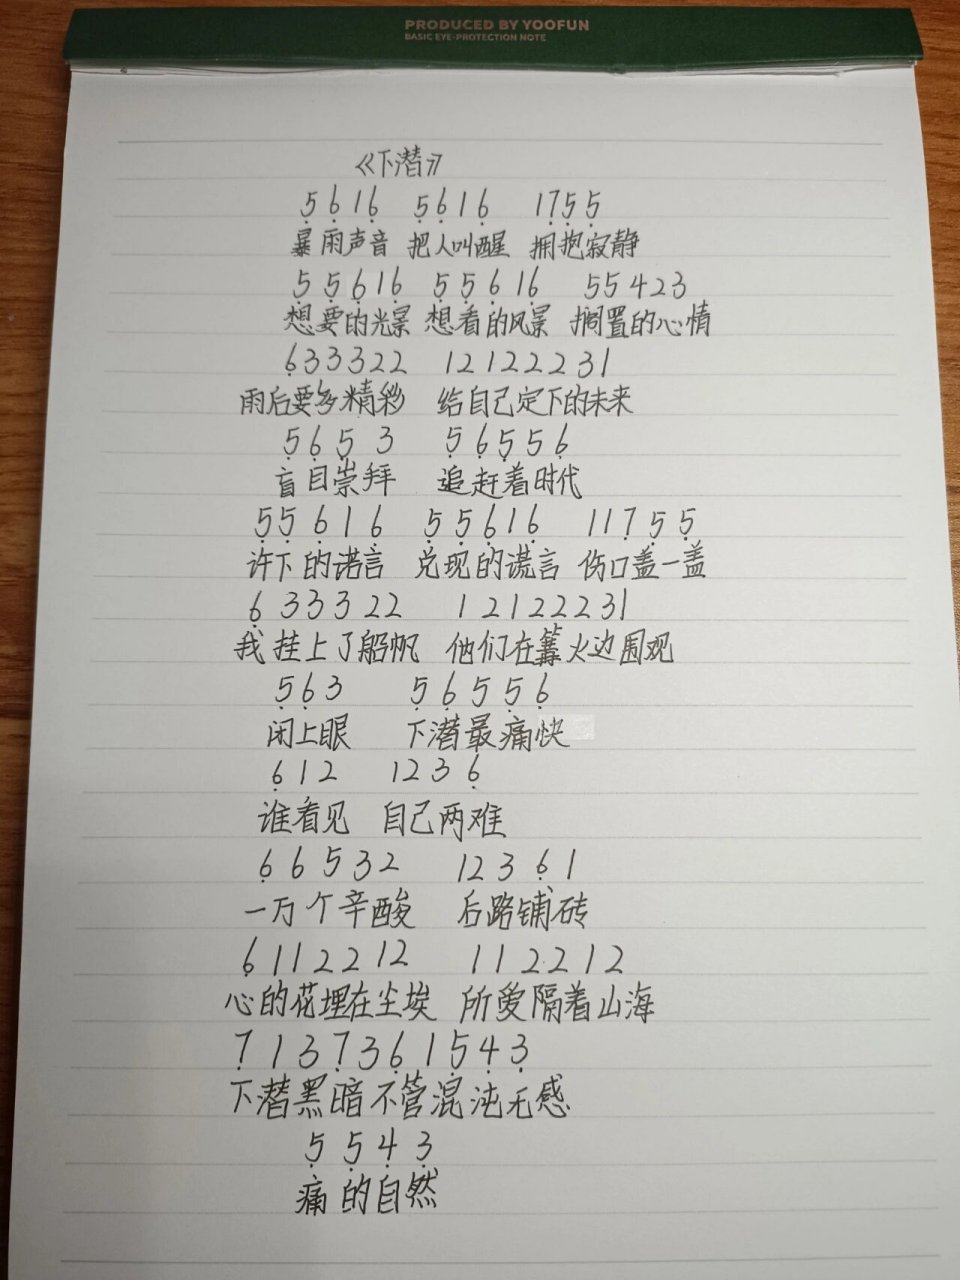 PRODUCED BY YOOFUN
BASIC EYE-PROTECTION NOTE
《下潜》
5̣ 6̣ 1 6̣  5̣ 6̣ 1 6̣  1 7̣ 5̣ 5̣
暴雨声音 把人叫醒 拥抱寂静
5̣ 5̣ 6̣ 1 6̣  5̣ 5̣ 6̣ 1 6̣  5 5 4 2 3
想要的光景 想看的风景 搁置的心情
6̣ 3 3 3 2 2  1 2 1 2 2 2 3 1
雨后要多精彩 给自己定下的未来
5̣ 6̣ 5̣ 3  5̣ 6̣ 5̣ 5̣ 6̣
盲目崇拜 追赶着时代
5̣ 5̣ 6̣ 1 6̣  5̣ 5̣ 6̣ 1 6̣  1 1 7̣ 5̣ 5̣
许下的诺言 兑现的谎言 伤口盖一盖
6̣ 3 3 3 2 2  1 2 1 2 2 2 3 1
我挂上了船帆 他们在篝火边围观
5̣ 6̣ 3  5̣ 6̣ 5̣ 5̣ 6̣
闭上眼 下潜最痛快
6̣ 1 2  1 2 3 6̣
谁看见 自己两难
6̣ 6 5 3 2  1 2 3 6̣ 1
一万个辛酸 后路铺砖
6̣ 1 1 2 2 1 2  1 1 2 2 1 2
心的花埋在尘埃 所爱隔着山海
7̣ 1 3 7̣ 3 6̣ 1 5̣ 4̣ 3̣
下潜黑暗不管混沌无感
5̣ 5̣ 4̣ 3̣
痛的自然